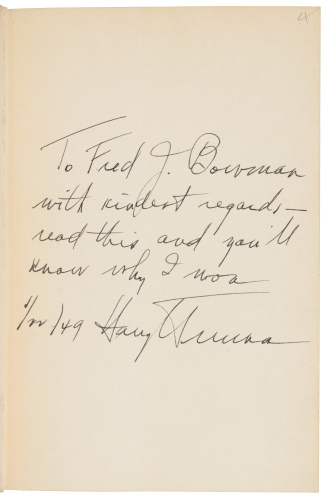 To Fred J. Bowman
with kindest regards—
read this and you'll
know why I won
1/22/49 Harry Truman